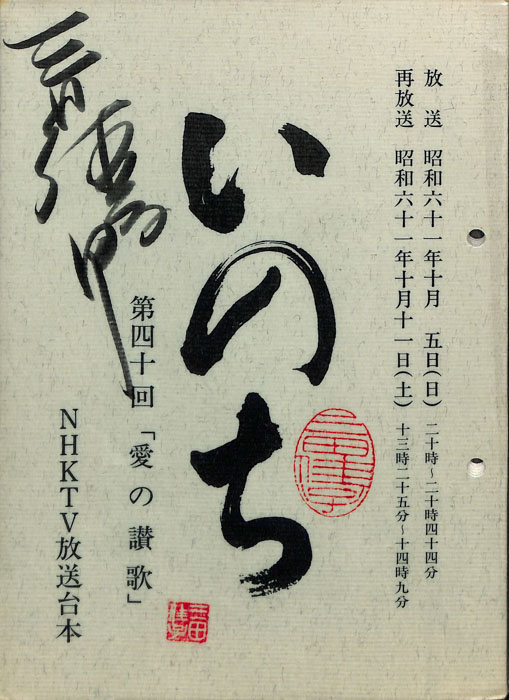 放送 昭和六十一年十月 五日(日) 二十時~二十時四十四分
再放送 昭和六十一年十月十一日(土) 十三時二十五分~十四時九分
いのち
第四十回「愛の讃歌」
NHKTV放送台本